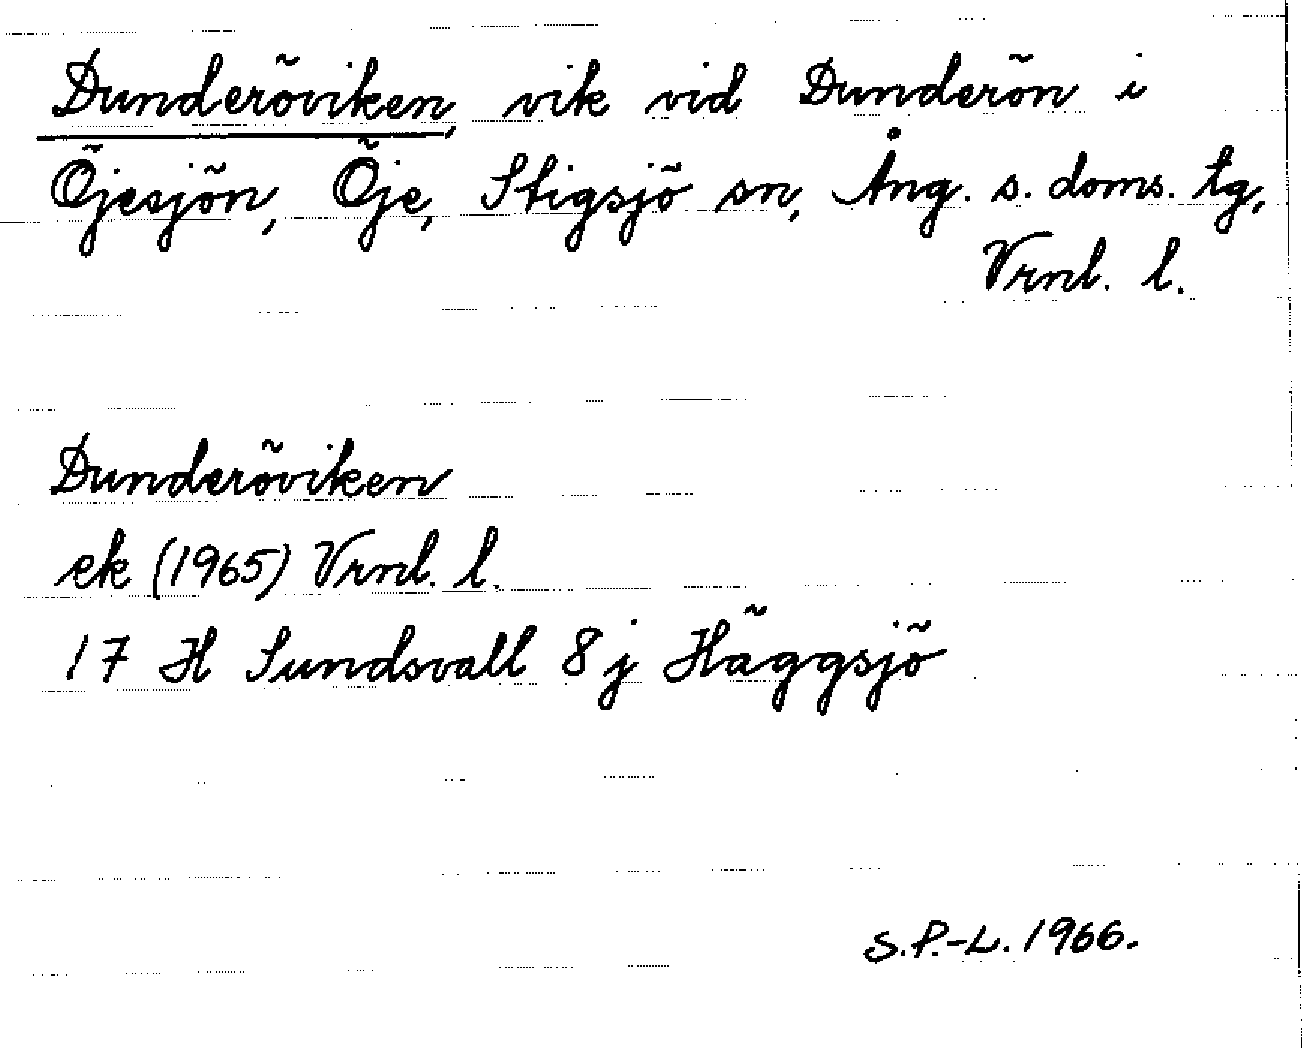 Dunderöviken, vik vid Dunderön i
Öjesjön, Öje, Stigsjö sn, Ång. s. doms. tg,
Vrnl. l.
Dunderöviken
ek (1965) Vrnl. l.
17 H Sundsvall 8 j Häggsjö
S.P.-L. 1966.